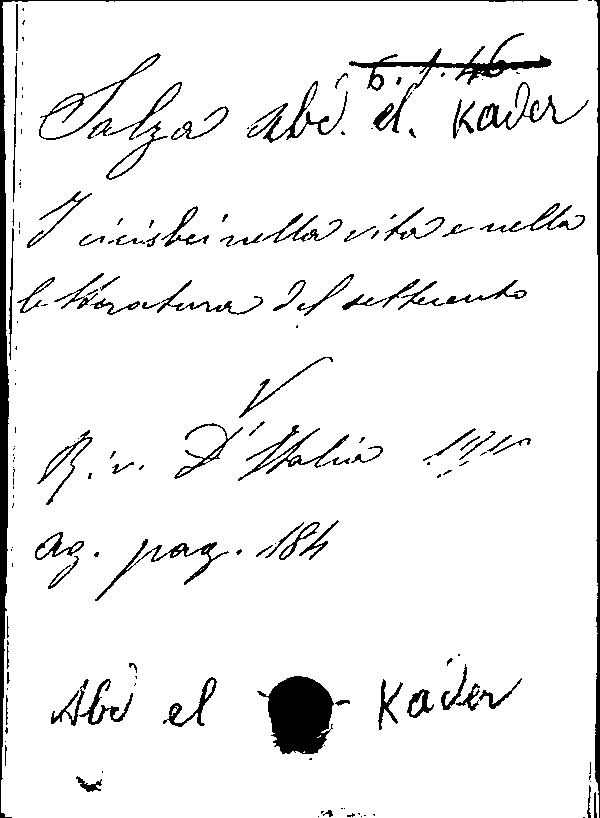 6.1.46
Salza Abd. el. Kader
I cicisbei nella vita e nella
letteratura del settecento
V
Riv. D'Italia 1910
ag. pag. 184
Abd el Kader